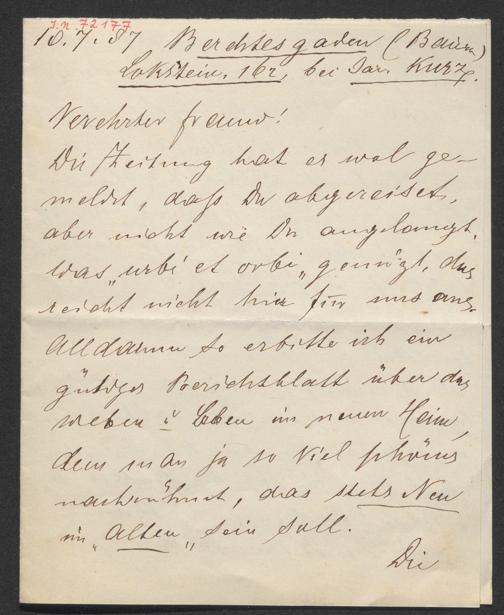 I.N. 72177
10.7.87 Berchtesgaden (Baiern)
Lokstein, 162, bei Jar. Kurz.
Verehrter Freund!
Die Zeitung hat es wol ge-
meldet, daß Du abgereiset,
aber nicht wie Du angelangt.
Was „urbi et orbi„ genügt, das
reicht nicht hier für uns aus.
Alldann so erbitte ich ein
gütiges Berichtsblatt über das
weben u Leben im neuen Heim,
dem man ja so viel schönes
nachrühmt, das stets Neu
im „Alten„ sein soll.
Die